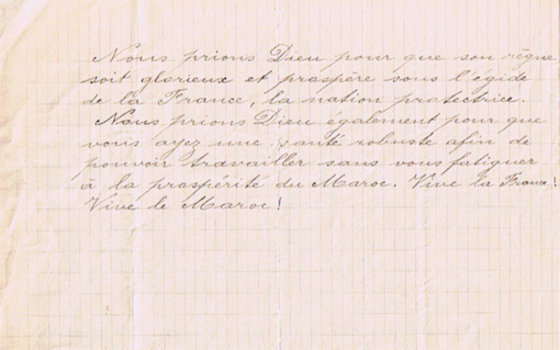 Nous prions Dieu pour que son règne
soit glorieux et prospère sous l'égide
de la France, la nation protectrice.
Nous prions Dieu également pour que
vous ayez une santé robuste afin de
pouvoir travailler sans vous fatiguer
à la prospérité du Maroc. Vive la France!
Vive le Maroc!